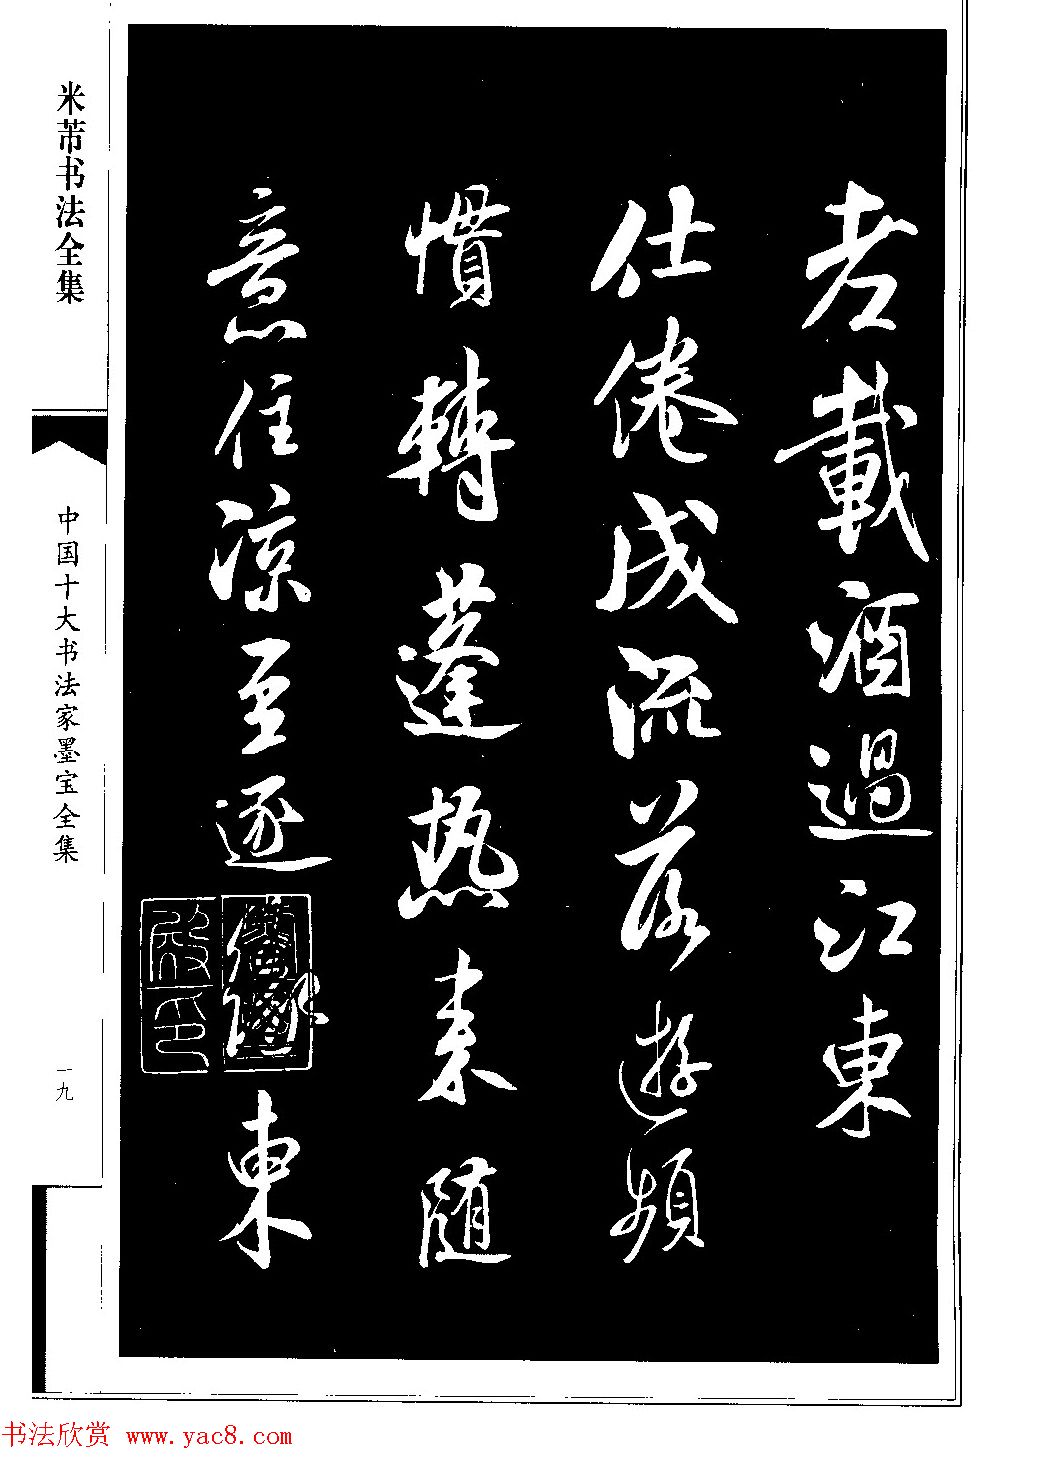 老載酒過江東
仕倦成流落遊頻
慣轉蓬热来随
意住涼至逐緣東
米芾书法全集
中国十大书法家墨宝全集
一九
书法欣赏 www.yac8.com